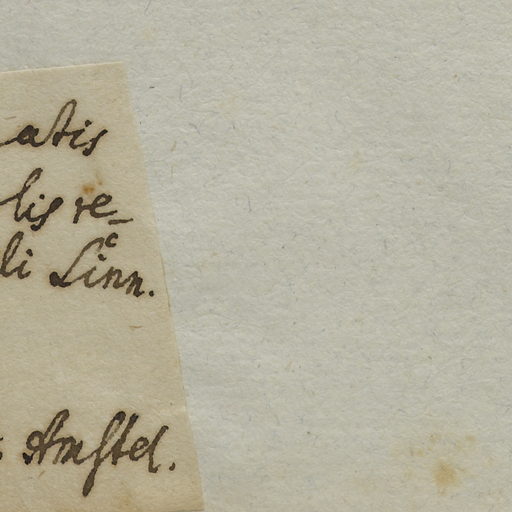 atis
lis re-
li Linn.
Amstel.